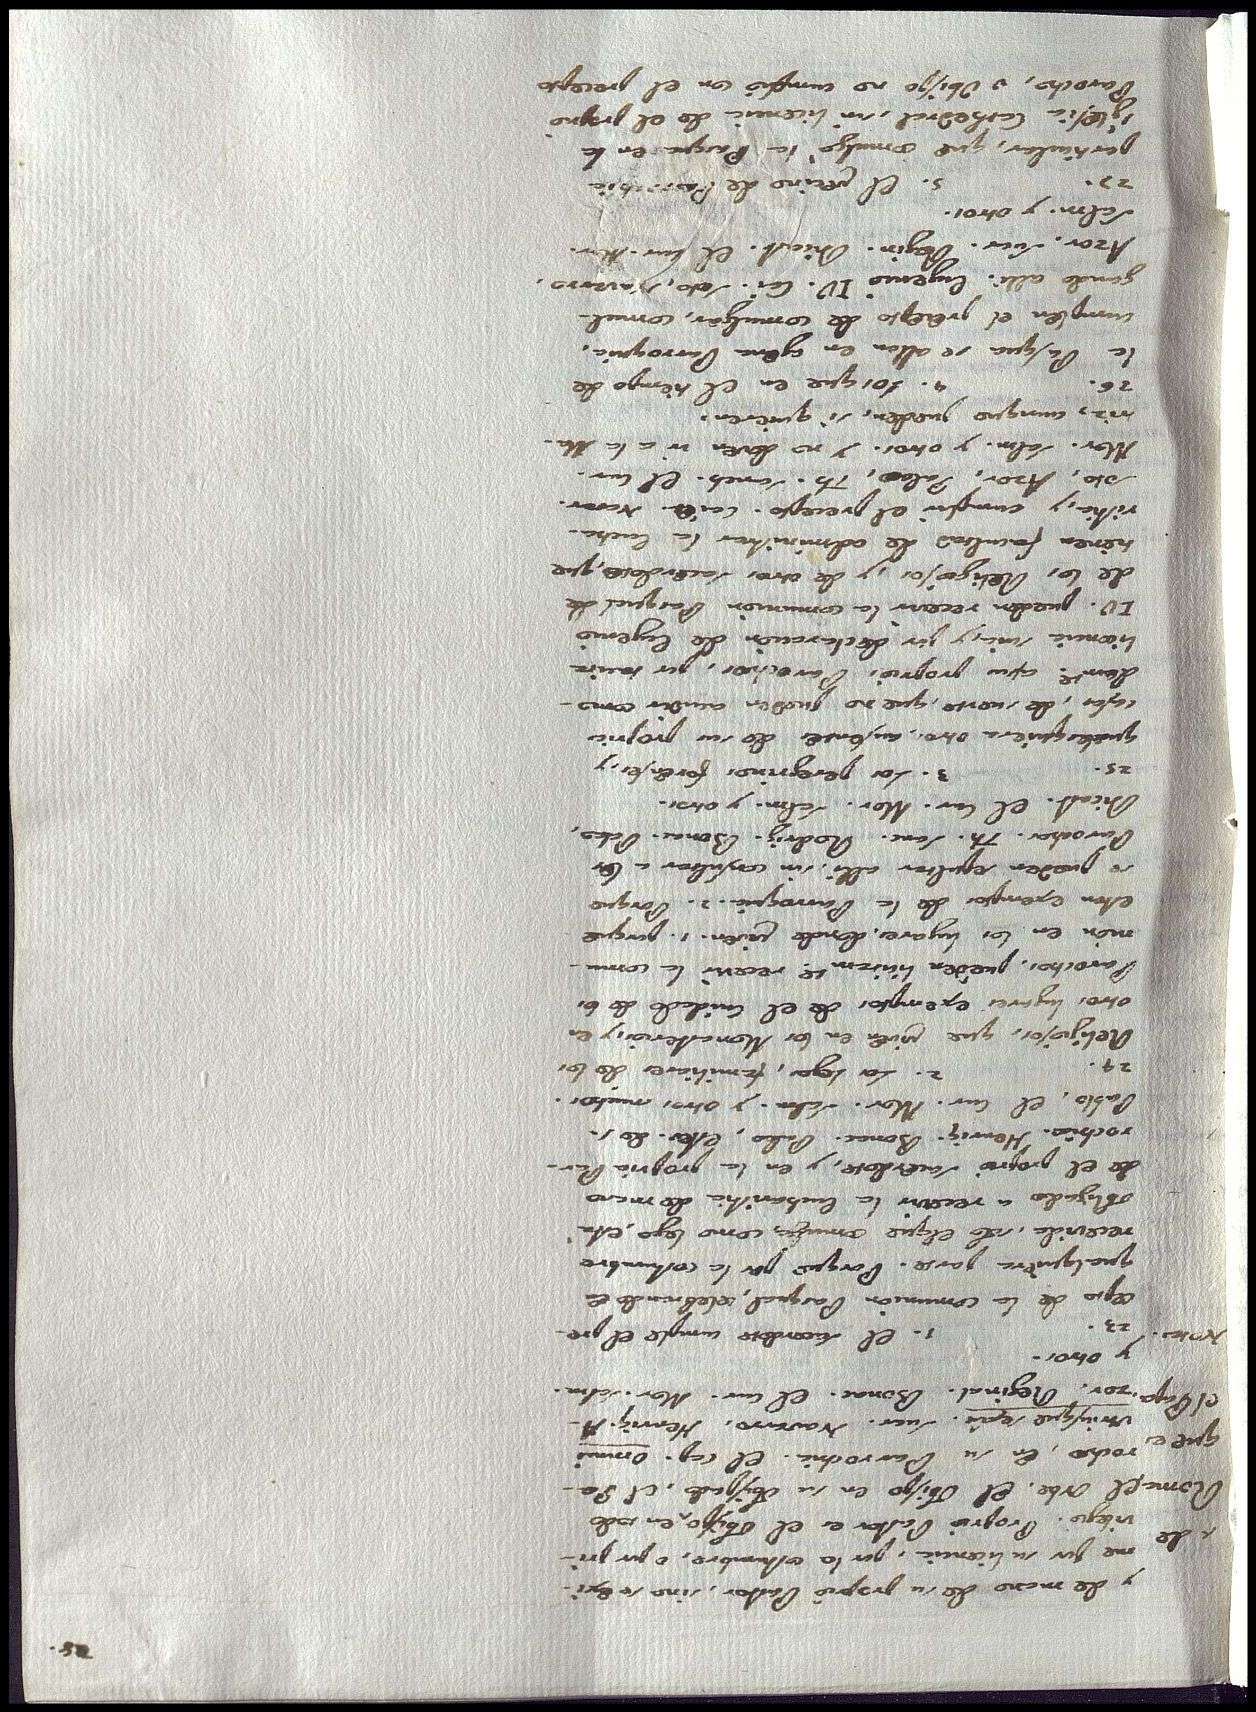 y de mano de su proprio Pastor, sino se exi-
me por su licencia, por la costumbre, o por pri-
vilegio. Proprio Pastor es el Obispo, en todo
+ de
Roma, el Orbe. El Obispo en su Obispado, el Pa-
que es
rocho, en su Parrochia. El cap. Omnis
el Papa.
utriusque sexus. Suar. Navarro. Henriq. A-
zor. Reginal. Bonac. El Cur. Mor. Salm.
y otros.
Notas.
23. 1. El sacerdote cumple el pre-
cepto de la comunion Pasqual, celebrando en
qualquiera parte. Porque por la costumbre
recevida, solo el que comulga, como lego, está
obligado a recevir la Eucharistia de mano
de el proprio sacerdote, y en la propria Par-
rochia. Henriq. Bonac. Palao, Ester. de S.
Pablo, el Cur. Mor. Salm. y otros muchos.
24. 2. Los legos, familiares de los
Religiosos, que viven en los Monasterios, y en
otros lugares exemptos de el cuidado de los
Parochos, pueden licitam.te recevir la comu-
nion en los lugares, donde viven. 1. porque
estan exemptos de la Parroquia. 2. Porque
se pueden sepultar alli, sin consultar a los
Parochos. Th. Sanc. Rodrig. Bonac. Palao,
Dicast. El Cur. Mor. Salm. y otros.
25. 3. Los peregrinos forenses, y
qualesquiera otros, ausentes de su propria
casa, de suerte, que no pueden acudir como-
dam.te a sus proprios Parochos, por tacita
licencia suia, y por declaracion de Eugenio
IV. pueden recevir la comunion Pasqual de
de los Religiosos, y de otros sacerdotes, que
tienen facultad de administrar la Eucha-
ristia, y cumplir el precepto. Caiet. Navar.
Soto, Azor, Palao, Th. Sanch. El Cur.
Mor. Salm. y otros. Y no deven ir a la Ma-
triz, aunque pueden, si quieren.
26. 4. Los que en el tiempo de
la Pasqua se allan en agena Parroquia,
cumplen el precepto de comulgar, comul-
gando alli. Eugenio IV. Cai. Soto, Navarro,
Azor, Suar. Regin. Dicast. El Cur. Mor.
Salm. y otros.
27. 5. El vecino de Parrochia
particular, que comulga la Pasqua en la
Iglesia Cathedral, sin licencia de el proprio
Parocho, o Obispo no cumple con el precepto